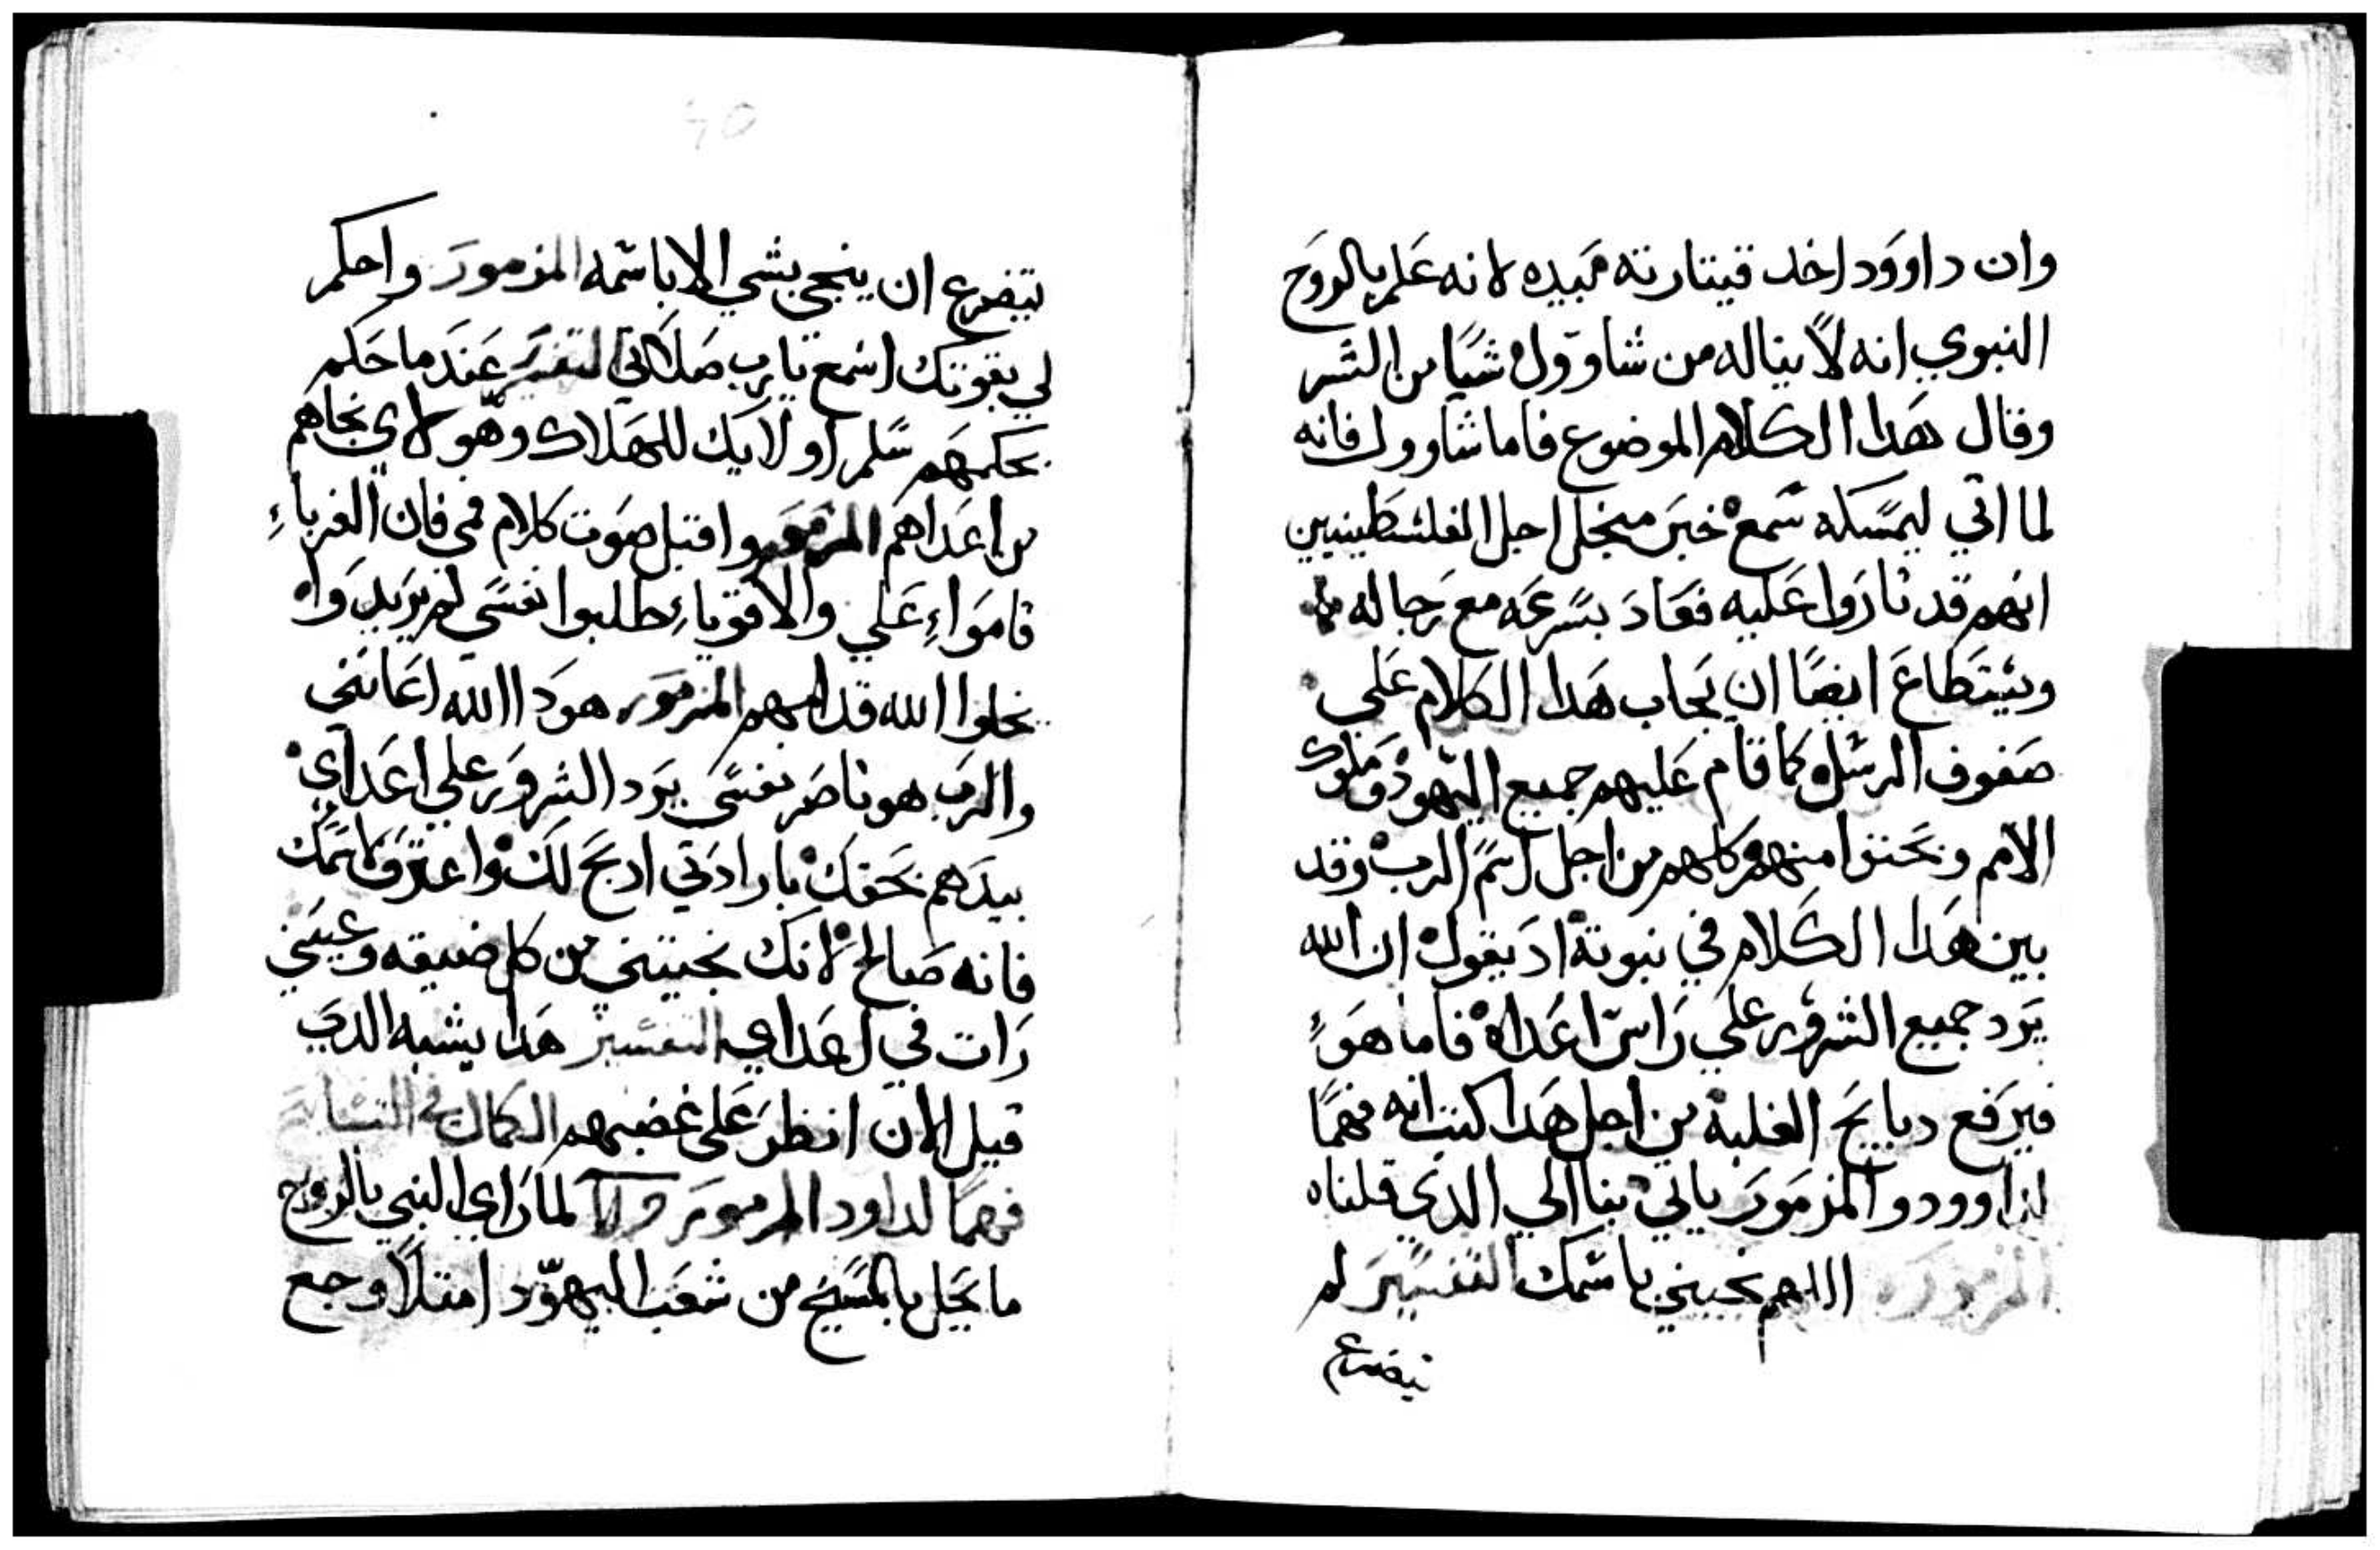 وان داوود اخد قيتارته بيده لانه علم بالروح
النبوي انه لا يناله من شاوول شيا من الشر
وقال هدا الكلام الموضوع فاما شاوول فانه
لما اتي ليمسكه سمع خبر من اجل الفلسطينيين
انهم قد ثاروا عليه فعاد بسرعه مع رجاله
ويستطاع ايضا ان يجاب هدا الكلام علي
صفوف الرسل كما قام عليهم جميع اليهود وملوك
الامم وتحننوا منهم كلهم من اجل اسم الرب وقد
بين هدا الكلام في نبوته اد يقول ان الله
يرد جميع الشرور علي راس اعداه فاما هو
فيرفع دبايح الغلبه من اجل هدا كتب انه فهما
لداوود والمزمور ياتي بنا الي الدي قلناه
المزمور اللهم نجيني باسمك التفسير لم
يتضرع
40
يتضرع ان ينجي بشي الا باسمه المزمور واحكم
لي بقوتك اسمع يا رب صلاتي التفسير عند ما حكم
بحكمهم سلم اولايك للهلاك وهولاي نجاهم
من اعداهم المزمور واقتبل صوت كلام في فان الغرباء
قامواء علي والاقوياء طلبوا نفسي لم يريدواه
يجعلوا الله قدامهم المزمور هودا الله اعانني
والرب هو ناصر نفسي يرد الشرور علي اعداي
بيدهم بحقك بارادتي ادبح لك واعترف لاسمك
فانه صالح لانك نجيتني من كل ضيقه وعيني
رات في اعداي التفسير هدا يشبه الدي
قيل الان انظر علي غضبهم الكمال في التسابيح
فهما لداود المزمور لما راي النبي بالروح
ما يحل بالمسيح من شعب اليهود امتلا وجع